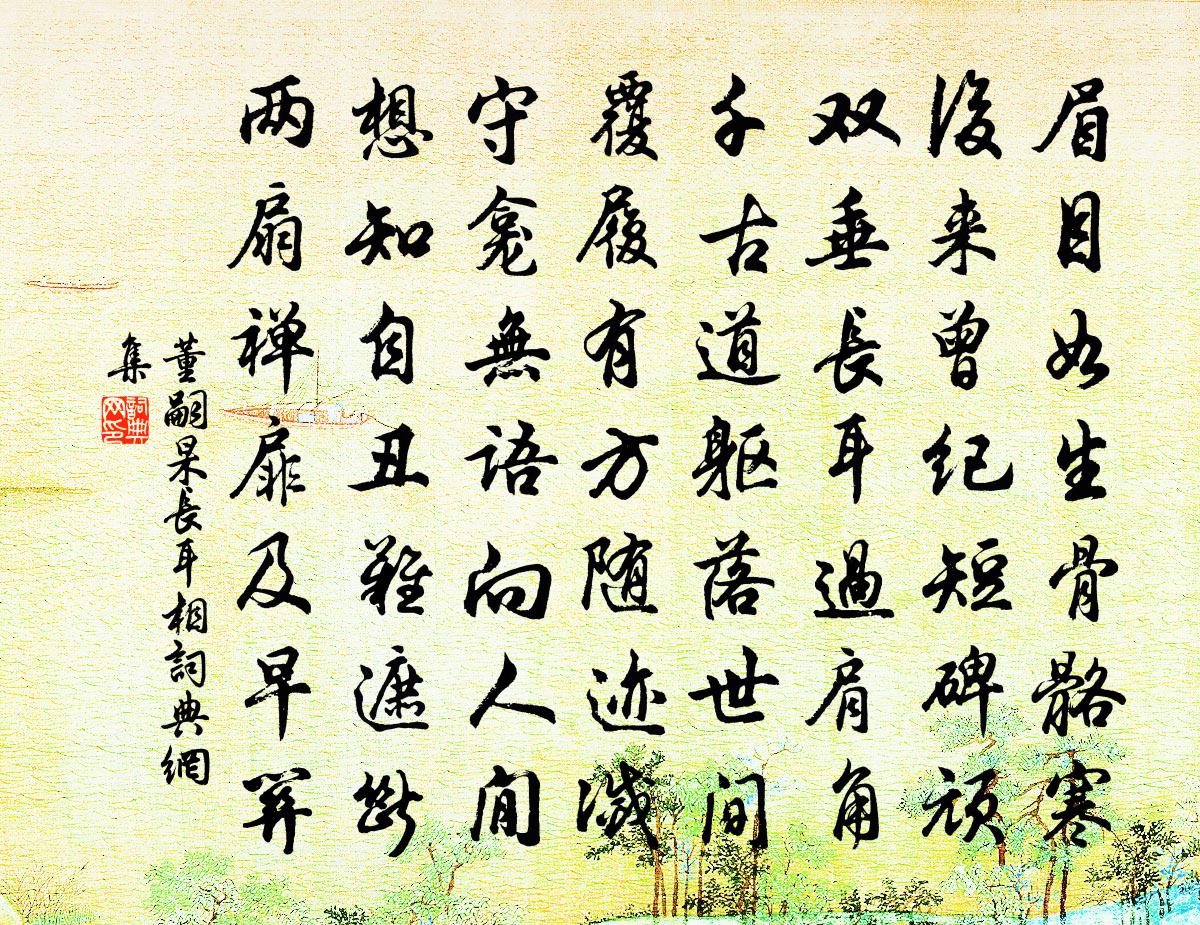 眉目如生骨骼寒
後来曾纪短碑顽
双垂長耳過肩角
千古道躯落世间
覆履有方随迹滅
守龛無语向人闲
想知自丑難遮斷
两扇禅扉及早関
董嗣杲長耳相詞典網
集
詞典
网印